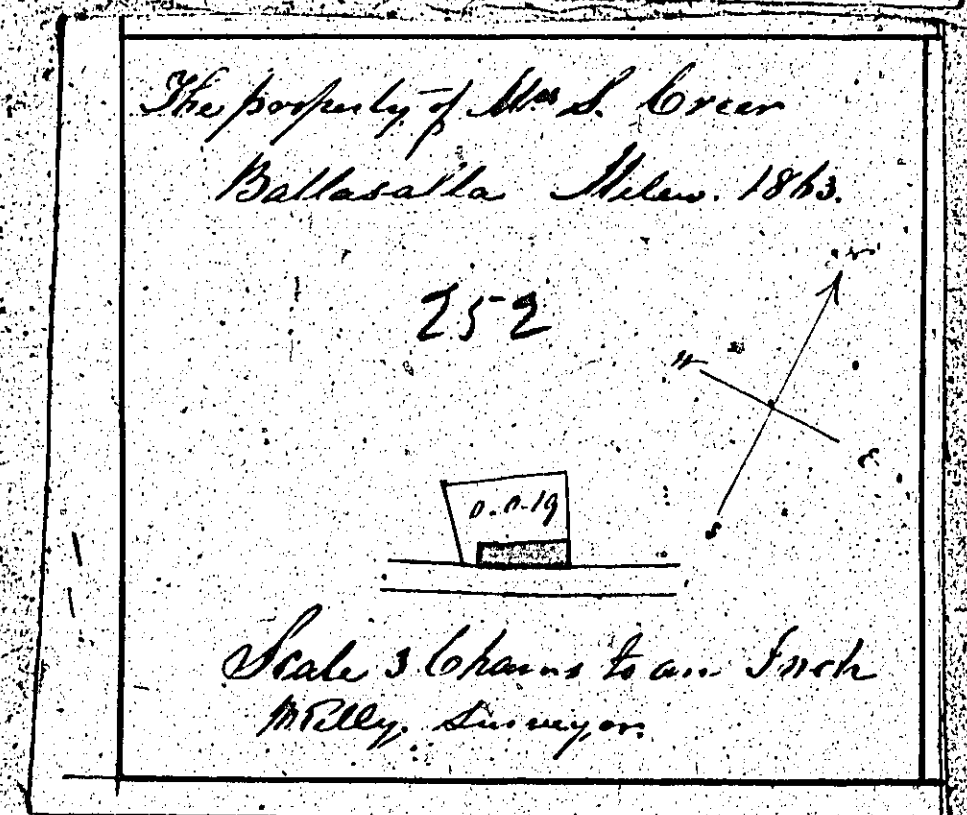 The property of Mrs S. Creer
Ballasalla Malew. 1863.
252
N
W
E
S
0.0.19
Scale 3 Chains to an Inch
Surveyor